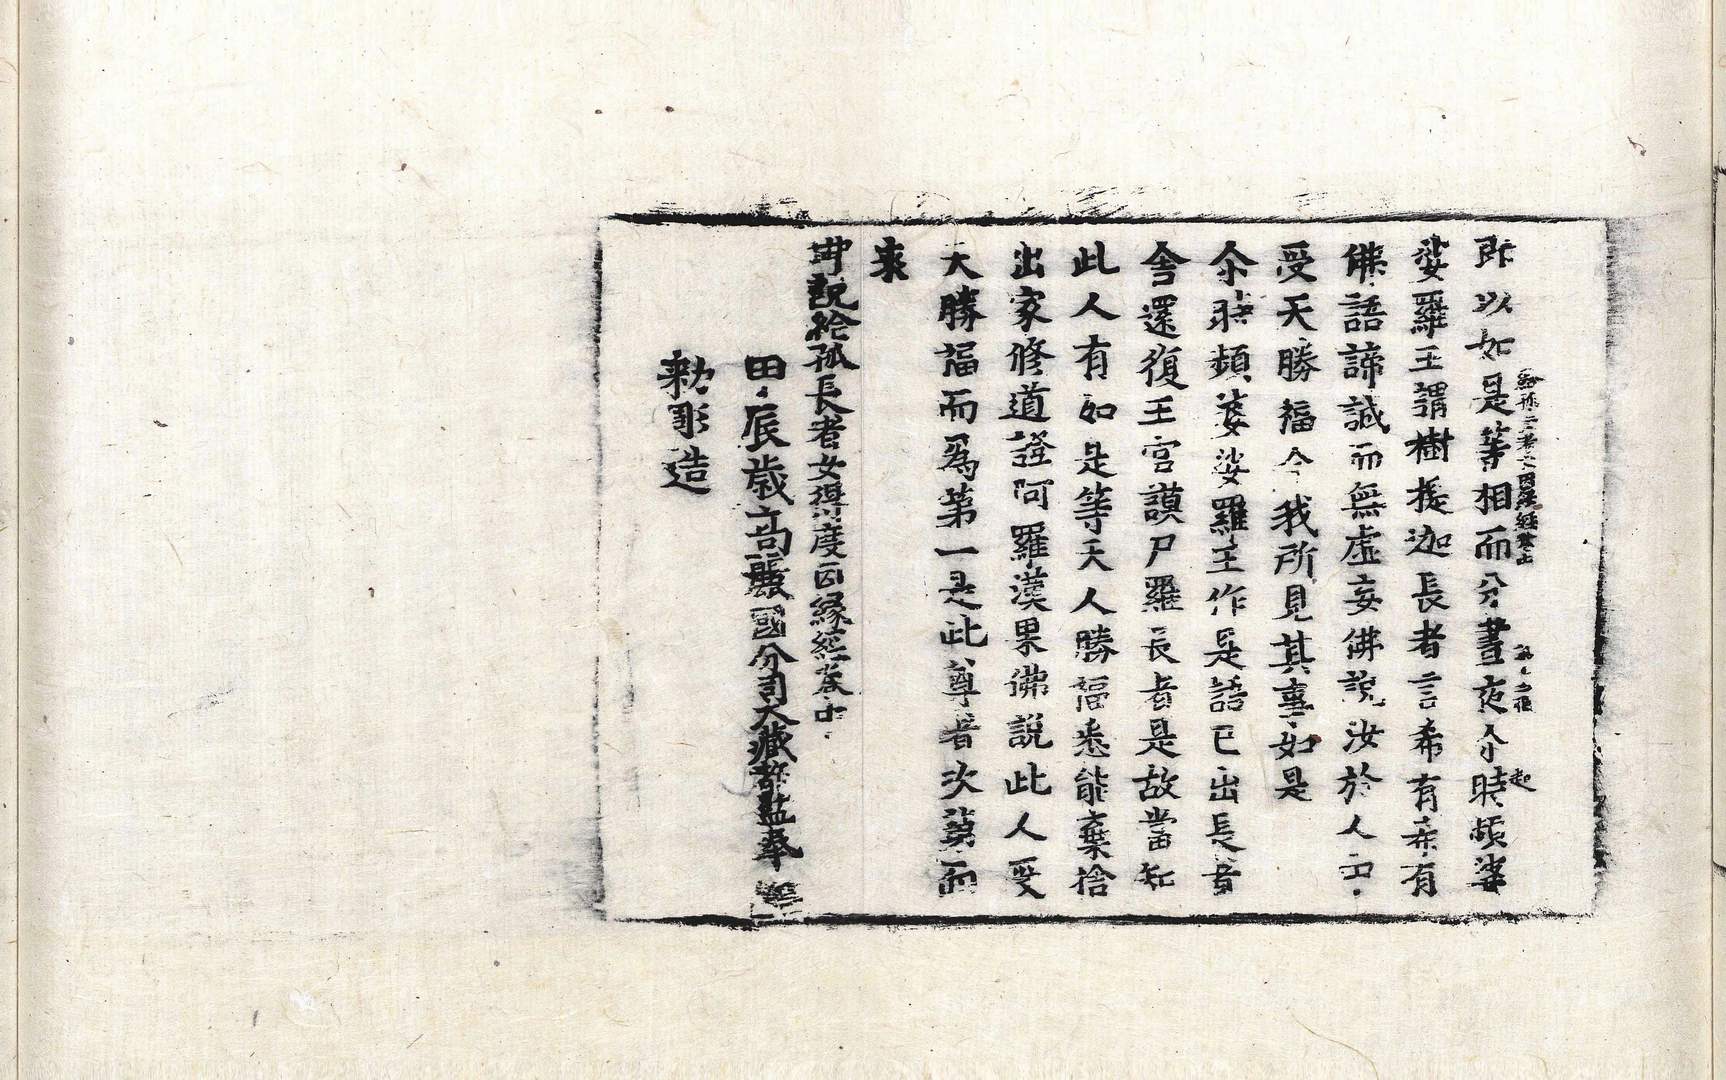 即以如是等相而分晝夜尒時頻婆
娑羅王謂樹提迦長者言希有希有
佛語諦誠而無虛妄佛說汝於人中
受天勝福今我所見其事如是
尒時頻婆娑羅王作是語已出長者
舍還復王宮謨尸羅長者是故當知
此人有如是等天人勝福悉能棄捨
出家修道證阿羅漢果佛說此人受
天勝福而為第一是此尊者次第而
來
說給孤長者女得度因緣經卷中
甲辰歲高麗國分司大藏都監奉
勑彫造